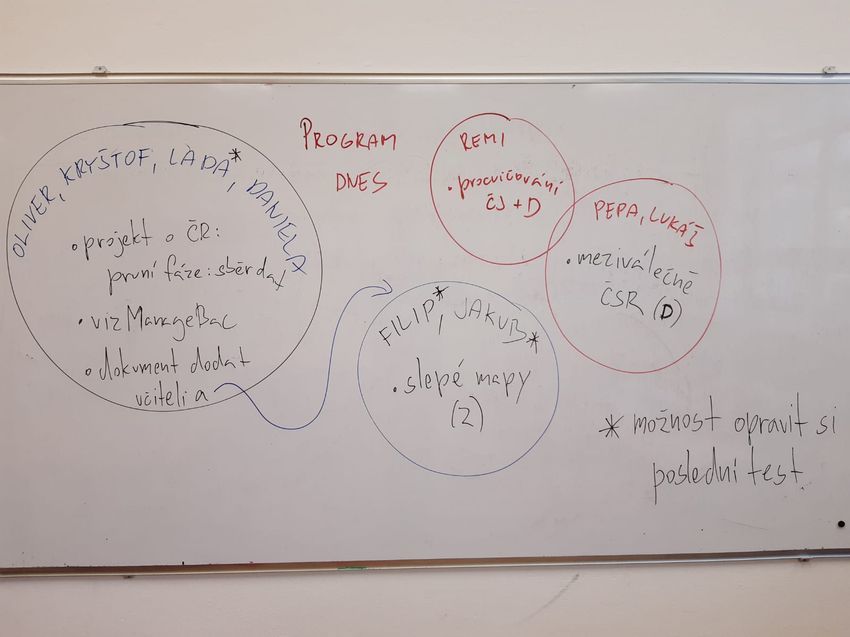 PROGRAM
DNES
OLIVER, KRYŠTOF, LÁĎA*, DANIELA
• projekt o ČR:
první fáze: sběr dat
• viz ManageBac
• dokument dodat
učiteli a
REMI
• procvičování
ČJ + D
PEPA, LUKÁŠ
• meziválečné
ČSR (D)
FILIP*, JAKUB*
• slepé mapy
(Z)
* možnost opravit si
poslední test